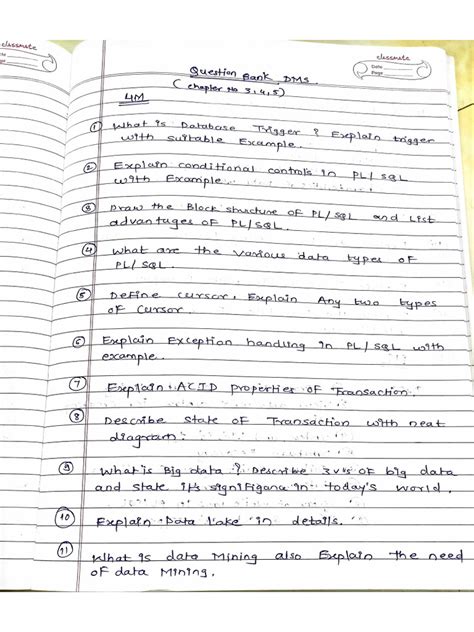 classmate
classmate
Date
Page
Question Bank DMS
(chapter No 3,4,5)
4M
① What is Database Trigger ? Explain trigger
with suitable Example.
② Explain conditional controls in PL/SQL
with Example.
③ Draw the Block structure of PL/SQL and List
advantages of PL/SQL.
④ What are the various data types of
PL/SQL.
⑤ Define cursor, Explain Any two types
of Cursor.
⑥ Explain Exception handling in PL/SQL with
example.
⑦ Explain ACID properties of Transaction.
⑧ Describe State of Transaction with neat
diagram.
⑨ What is Big data ? Describe 3v's of big data
and state it's signifigance in today's world.
⑩ Explain Data lake in details.
⑪ What is data Mining also Explain the need
of data Mining.